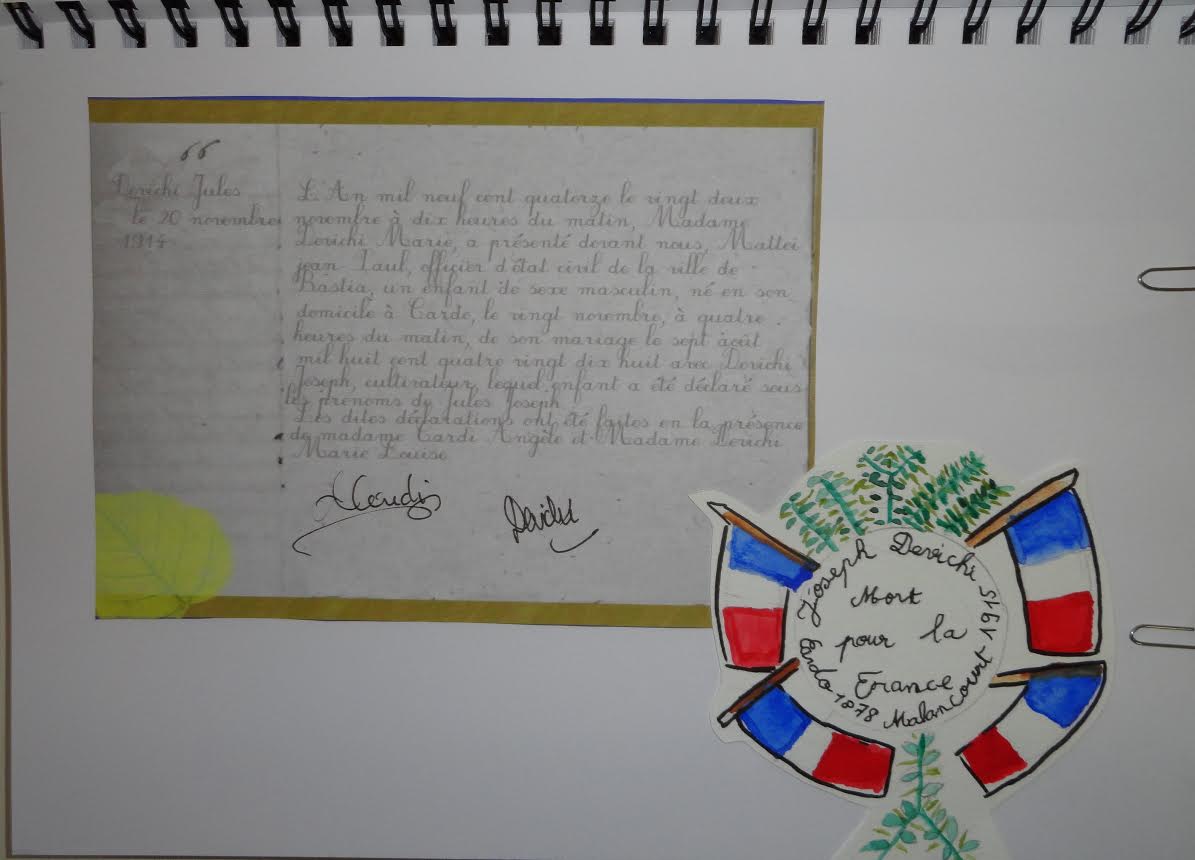 66
Derichi Jules
le 20 novembre
1914
L'An mil neuf cent quatorze le vingt deux
novembre à dix heures du matin, Madame
Derichi Marie, a présenté devant nous, Mattei
jean Paul, officier d'état civil de la ville de
Bastia, un enfant de sexe masculin, né en son
domicile à Cardo, le vingt novembre, à quatre
heures du matin, de son mariage le sept août
mil huit cent quatre vingt dix huit avec Derichi
Joseph, cultivateur, lequel enfant a été déclaré sous
les prenoms de Jules Joseph
Les dites déclarations ont été faites en la présence
de madame Cardi Angèle et Madame Derichi
Marie Louise
Derichi
Joseph Derichi
Mort
pour la
France
Cardo 1878 Malancourt 1915